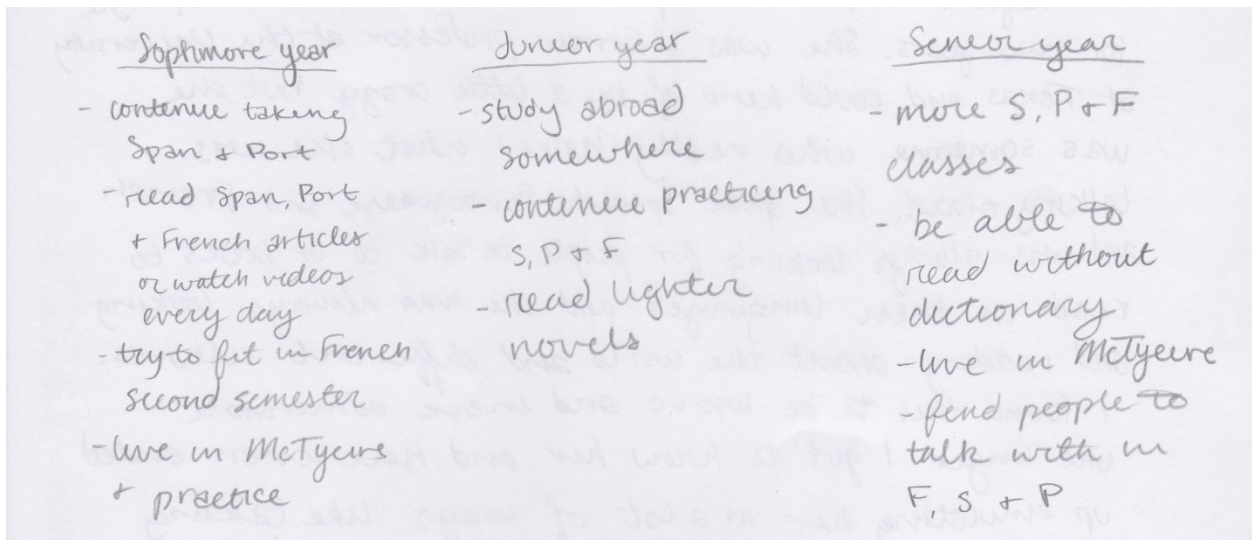 Sophmore year
- continue taking
Span + Port
- read Span, Port
+ French articles
or watch videos
every day
- try to fit in French
second semester
- live in McTyeire
+ practice
Junior year
- study abroad
somewhere
- continue practicing
S, P + F
- read lighter
novels
Senior year
- more S, P + F
classes
- be able to
read without
dictionary
- live in McTyeire
- find people to
talk with in
F, S + P